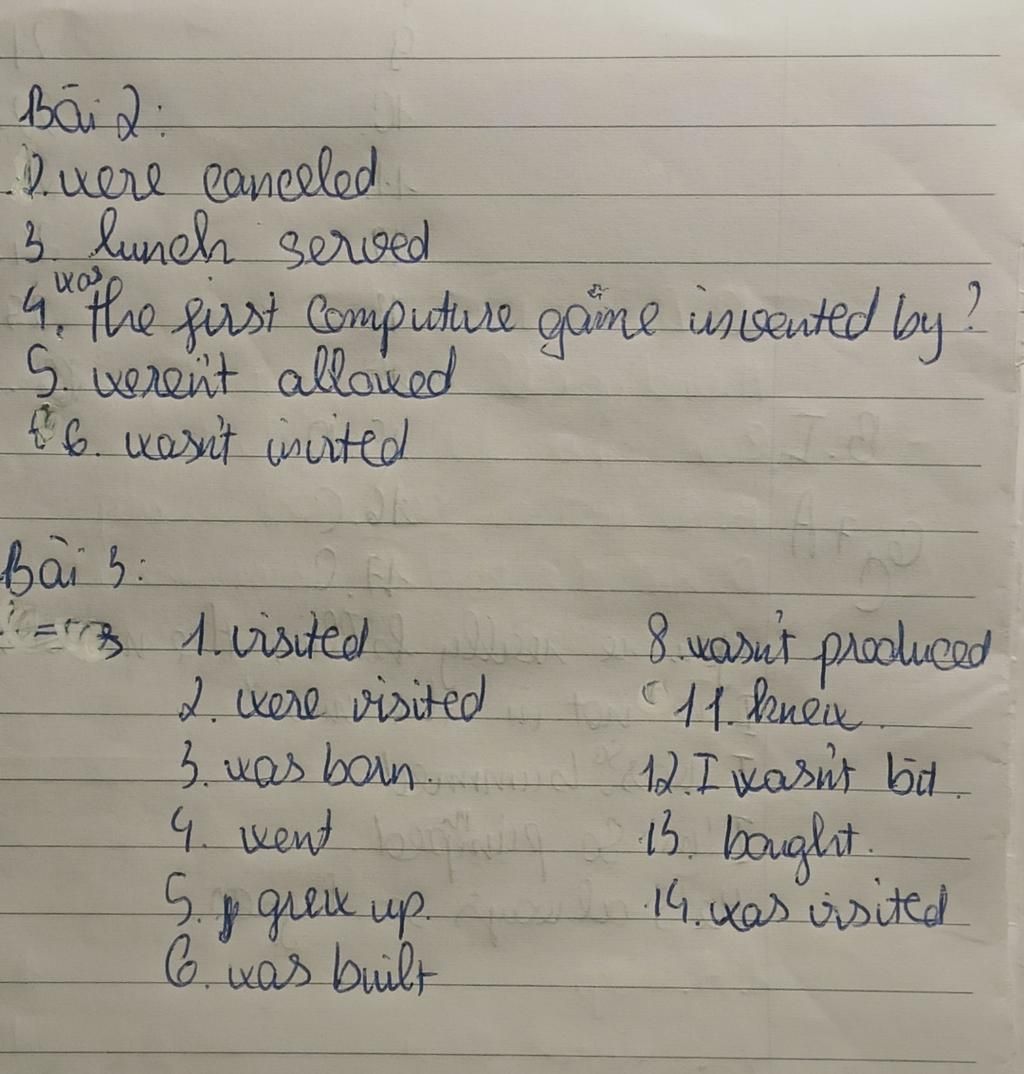 Bài 2:
2. were canceled
3. lunch served
4. was the first computure game invented by?
5. weren't allowed
6. wasn't invited
Bài 3:
1. visited
2. were visited
3. was born.
4. went
5. grew up.
6. was built
8. wasn't produced
11. knew.
12. I wasn't bit.
13. bought.
14. was visited